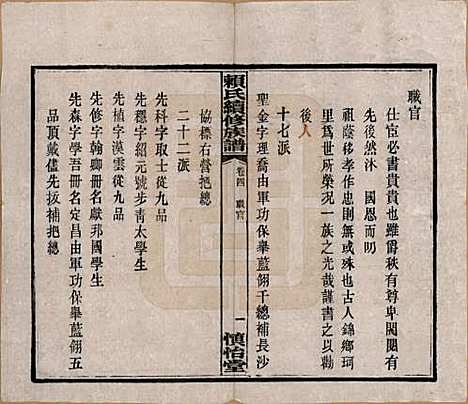 職官
仕宦必書貴貴也雖爵秩有尊卑閥閱有
先後然沐　國恩而明
祖蔭移孝作忠則無或殊也古人錦鄉珂
里爲世所榮況一族之光哉謹書之以勸
後人
十七派
聖金字理喬由軍功保舉藍翎千總補長沙
賴氏續修族譜
卷四　職官
一
慎怡堂
協標右營把總
二十二派
先科字取士從九品
先穩字紹元號步青太學生
先植字漢雲從九品
先修字翰卿冊名獻邦國學生
先森字學吾冊名定昌由軍功保舉藍翎五
品頂戴儘先拔補把總